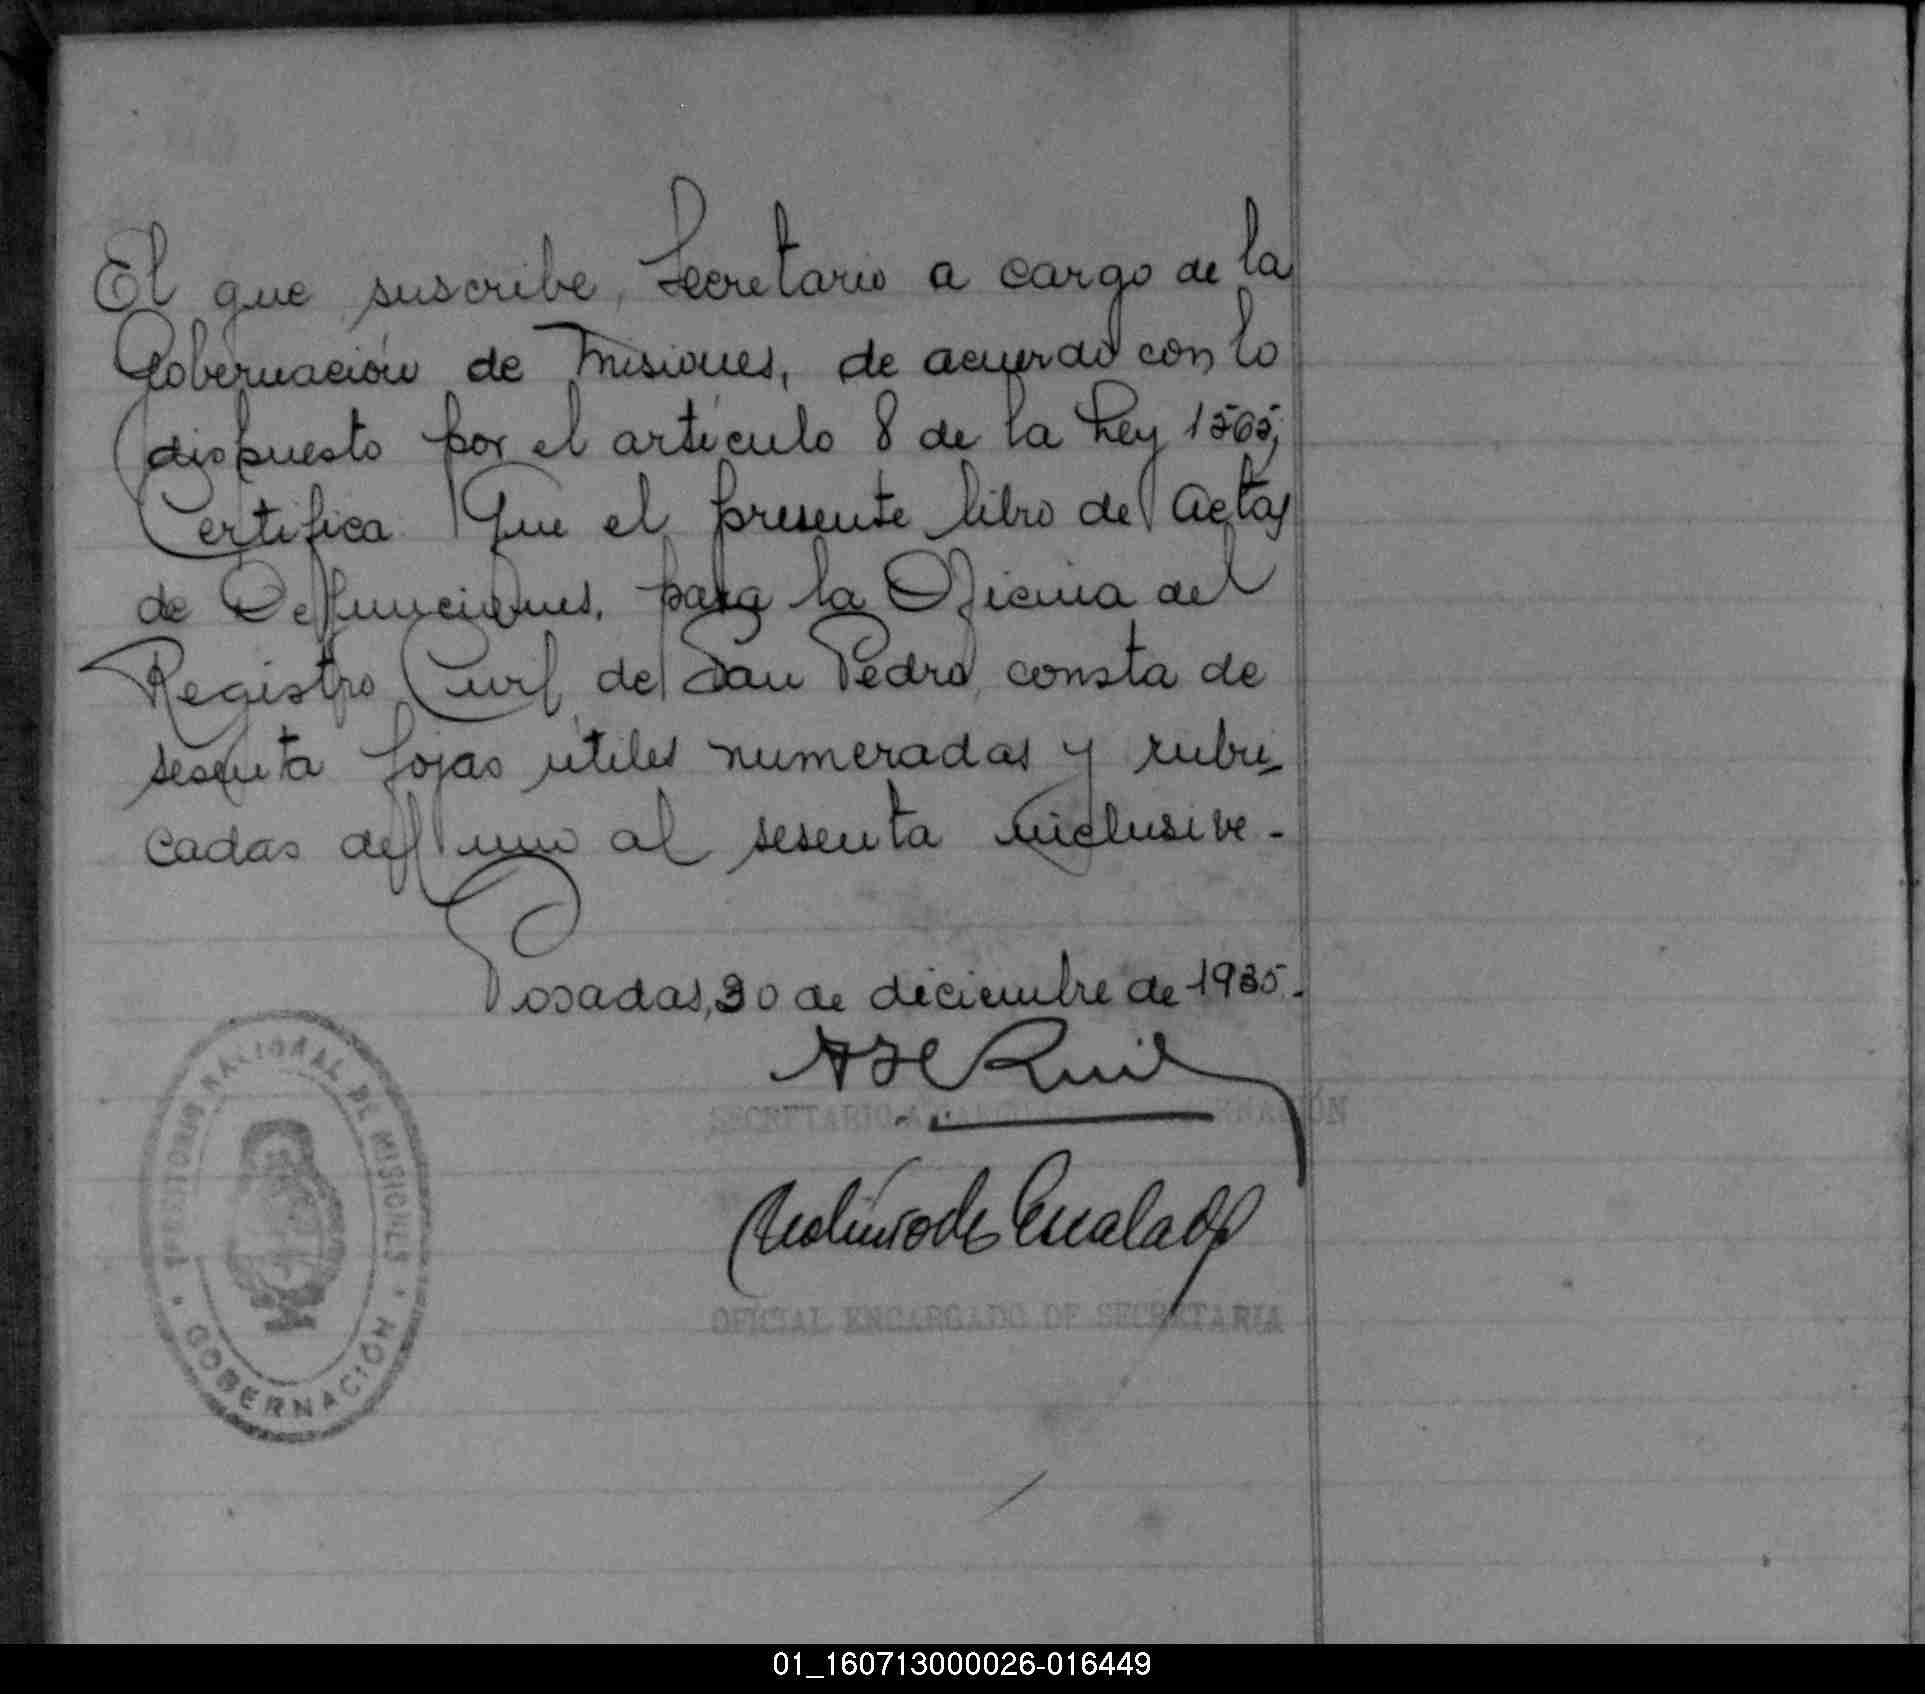 El que suscribe, Secretario a cargo de la
Gobernación de Misiones, de acuerdo con lo
dispuesto por el artículo 8 de la Ley 1565,
Certifica Que el presente libro de actas
de Defunciones, para la Oficina del
Registro Civil de San Pedro, consta de
sesenta fojas útiles numeradas y rubri-
cadas del uno al sesenta inclusive.-
Posadas, 30 de diciembre de 1935.-
SECRETARIO A CARGO GOBERNACIÓN
OFICIAL ENCARGADO DE SECRETARIA
TERRITORIO NACIONAL DE MISIONES
GOBERNACIÓN
01_160713000026-016449